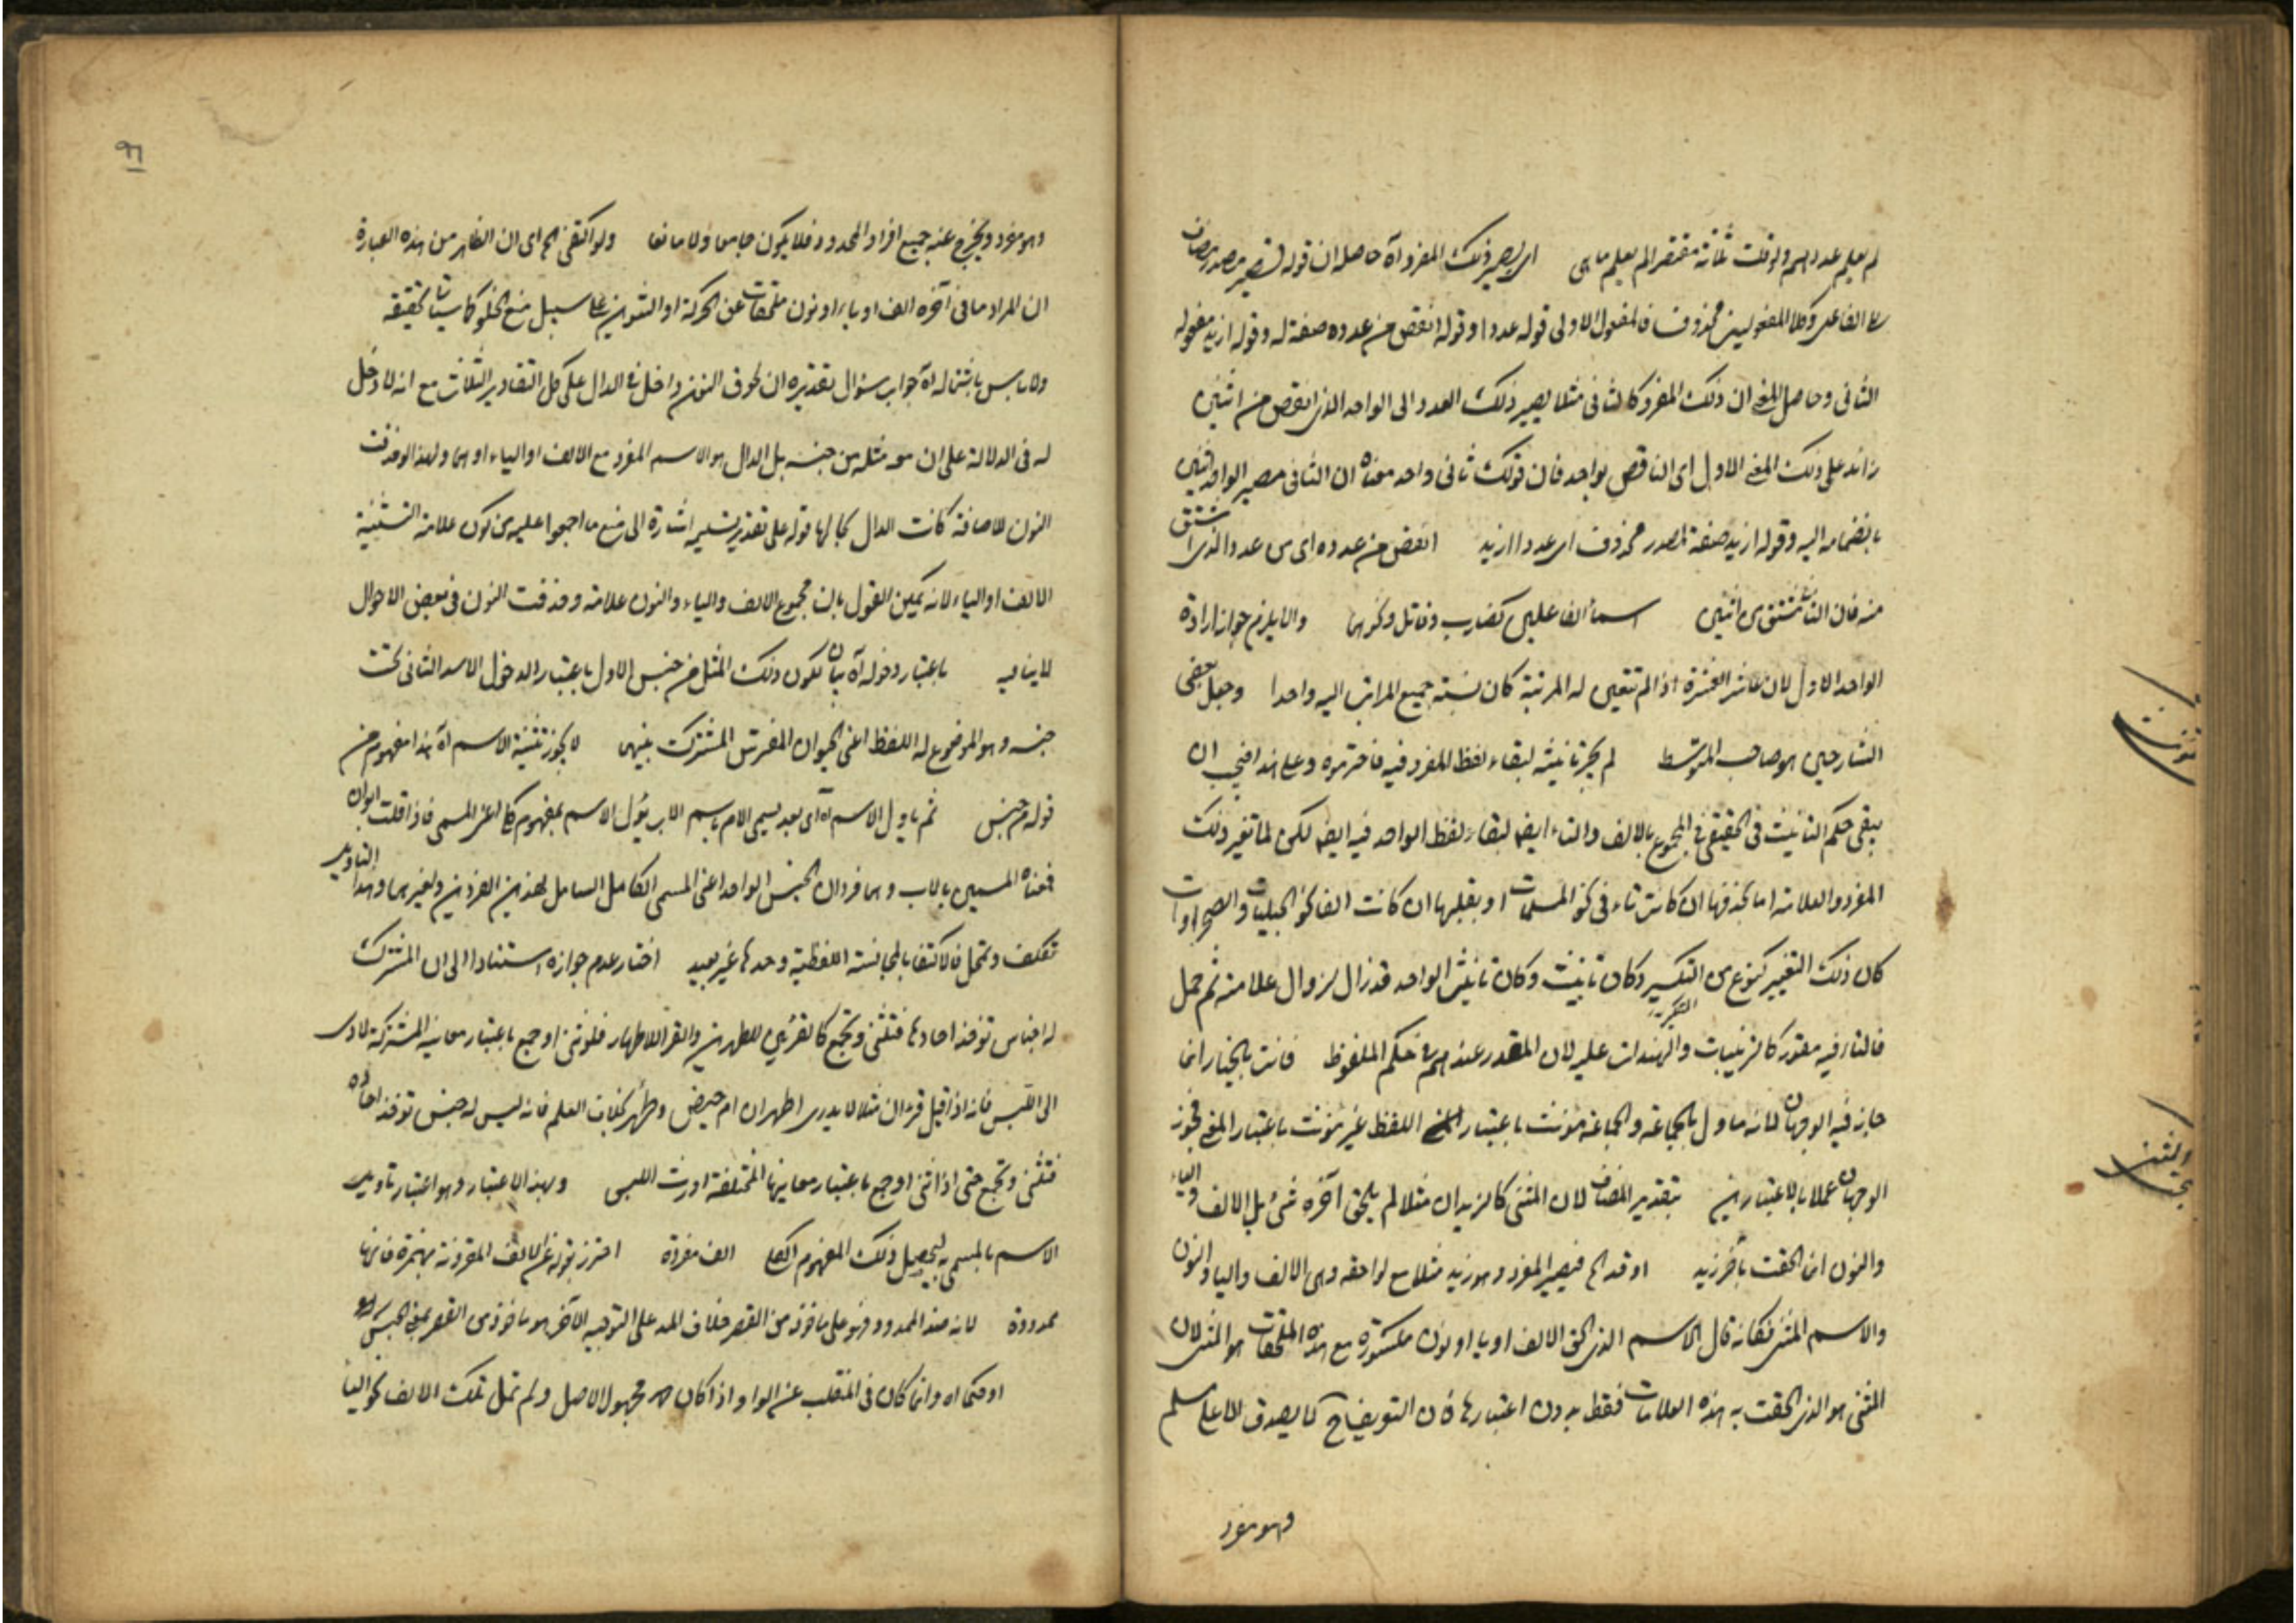 لم يعلم عددهم ولو قلت ثلثة مقتصرا لم يعلم ما هى اى يصير ذلك المفرد آه حاصله ان قوله تصيير مصدر مضاف
الى الفاعل وكلا المفعولين محذوف فالمفعول الاولى قوله عددا وقوله انقص من عدده صفة له وقوله ازيد مفعوله
الثانى وحاصل المعنى ان ذلك المفرد كالثانى مثلا يصير ذلك العدد اى الواحد الذى انقص من اثنين
زائد على ذلك المعنى الاول اى الناقص بواحد فان قولك ثانى واحد معناه ان الثانى مصير الواحد اثنين
بانضمامه اليه وقوله ازيد صفة لمصدر محذوف اى عددا ازيد انقص من عدده اى من عدد الذى اشتق
منه فان الثانى مشتق من اثنين اسماء الفاعلين كضارب وقاتل ونحوهما والا يلزم جواز ارادة
الواحد الاول لان عاشر العشرة اذا لم تتعين له المرتبة كان نسبة جميع المراتب اليه واحدا وجعل بعض
الشارحين هو صاحب المتوسط لم يجز تانيثه لبقاء لفظ المفرد فيه فاحترموه وعلى هذا فيجب ان
يبقى حكم التانيث فى الحقيقى فى المجموع بالالف والتاء ايضا لبقاء لفظ الواحد فيه ايضا لكن لما تغير ذلك
المفرد والعلامة اما بحذفها ان كانت تاء فى نحو المسلمات او بقلبها ان كانت الفا نحو الحبليات والصحراوات
كان ذلك التغيير كنوع من التكسير وكان تانيث وكان تانيث الواحد قد زال لزوال علامته ثم حمل
التكسير
فالتاء فيه مقدر كالزينبات والهندات عليه لان المقدر عندهم فى حكم الملفوظ فانت بالخيار انما
جاز فيه الوجهان لانه ماول بالجماعة والجماعة مؤنث باعتبار اللفظ غير مؤنث باعتبار المعنى فجوز
الوجهان عملا بالاعتبارين بتقدير المضاف لان المثنى كالزيدان مثلا لم يلحق آخره شئ بل الالف والياء
والنون انما لحقت بآخر زيد او قد الخ فيصير المفرد وهو زيد مثلا مع لواحقه وهى الالف والياء والنون
والاسم المثنى فكانه قال الاسم الذى لحق الالف او يا او نون مكسورة مع هذه الملحقات هو المثنى لان
المثنى هو الذى لحقت به هذه العلامات فقط بدون اعتبارها فان التعريف ح كما يصدق الا على مسلم
وهو مفرد
مؤنث
المثنى
وهو مفرد ويخرج عنه جميع افراد المحدود فلا يكون جامعا ولا مانعا ولو اكتفى الخ اى ان الظاهر من هذه العبارة
ان المراد ما فى آخره الف او ياء او نون ملحقات عن الحركة او التنوين على سبيل منع الخلو كما سياتى تحقيقه
ولا باس باشتماله آه جواب سئوال تقديره ان لحوق النون داخل فى الدال على كل التقادير الثلاث مع انه لا دخل
له فى الدلالة على ان معه مثله من جنسه بل الدال هو الاسم المفرد مع الالف او الياء او هما ولهذا لو حذفت
النون للاضافة كانت الدال بحالها قوله على تقدير تسليمه اشارة الى منع ما اجمعوا عليه من كون علامة التثنية
الالف او الياء لانه يمكن القول بان مجموع الالف والياء والنون علامة وحذفت النون فى بعض الاحوال
لاينافيه باعتبار دخوله آه بيان لكون ذلك المثل من جنس الاول باعتبار الدخول الاسد الثانى تحت
جنسه وهو الموضوع له اللفظ اعنى الحيوان المفترس المشترك بينهما لايجوز تثنية الاسم آه هذا مفهوم من
قوله من جنس ثم ياول الاسم آه اى بعد تسمى الام باسم الاب يؤل الاسم بمفهوم كلى اعنى المسمى فاذا قلت ابوان
فمعناه المسميين بالاب وهما فردان الجنس الواحد اعنى المسمى الكامل الشامل لهذين الفردين ولغيرهما وهذا التاويل
تكلف وتمحل فالاكتفاء بالمجانسة اللفظية وحدها غير بعيد اختار عدم جوازه استنادا الى ان المشترك
له اجناس توخذ احادها فتثنى وتجمع كالقرئين للطهرين والقراء للاطهار فلو ثنى او جمع باعتبار معانيه المشتركة لادى
الى اللبس فانه اذا قيل قرءان مثلا لا يدرى اطهران ام حيض وطهر بخلاف العلم فانه ليس له جنس توخذ احاده
فتثنى وتجمع حتى اذا ثنى او جمع باعتبار معانيها المختلفة اورث اللبس وبهذا الاعتبار وهو اعتبار تاويل
الاسم بالمسمى به ليحصل ذلك المفهوم الكلى الف مفردة احترز بقوله عن الالف المقرونة بهمزة فانها
ممدودة لانه ضد الممدود فهو على ماخوذ من القصر خلاف المد على التوجيه الآخر هو ماخوذ من القصر بمعنى الحبس
او حكما اه وانما كان فى المنقلب عن الواو اذا كان مجهول الاصل ولم تمل تلك الالف نحو اليا